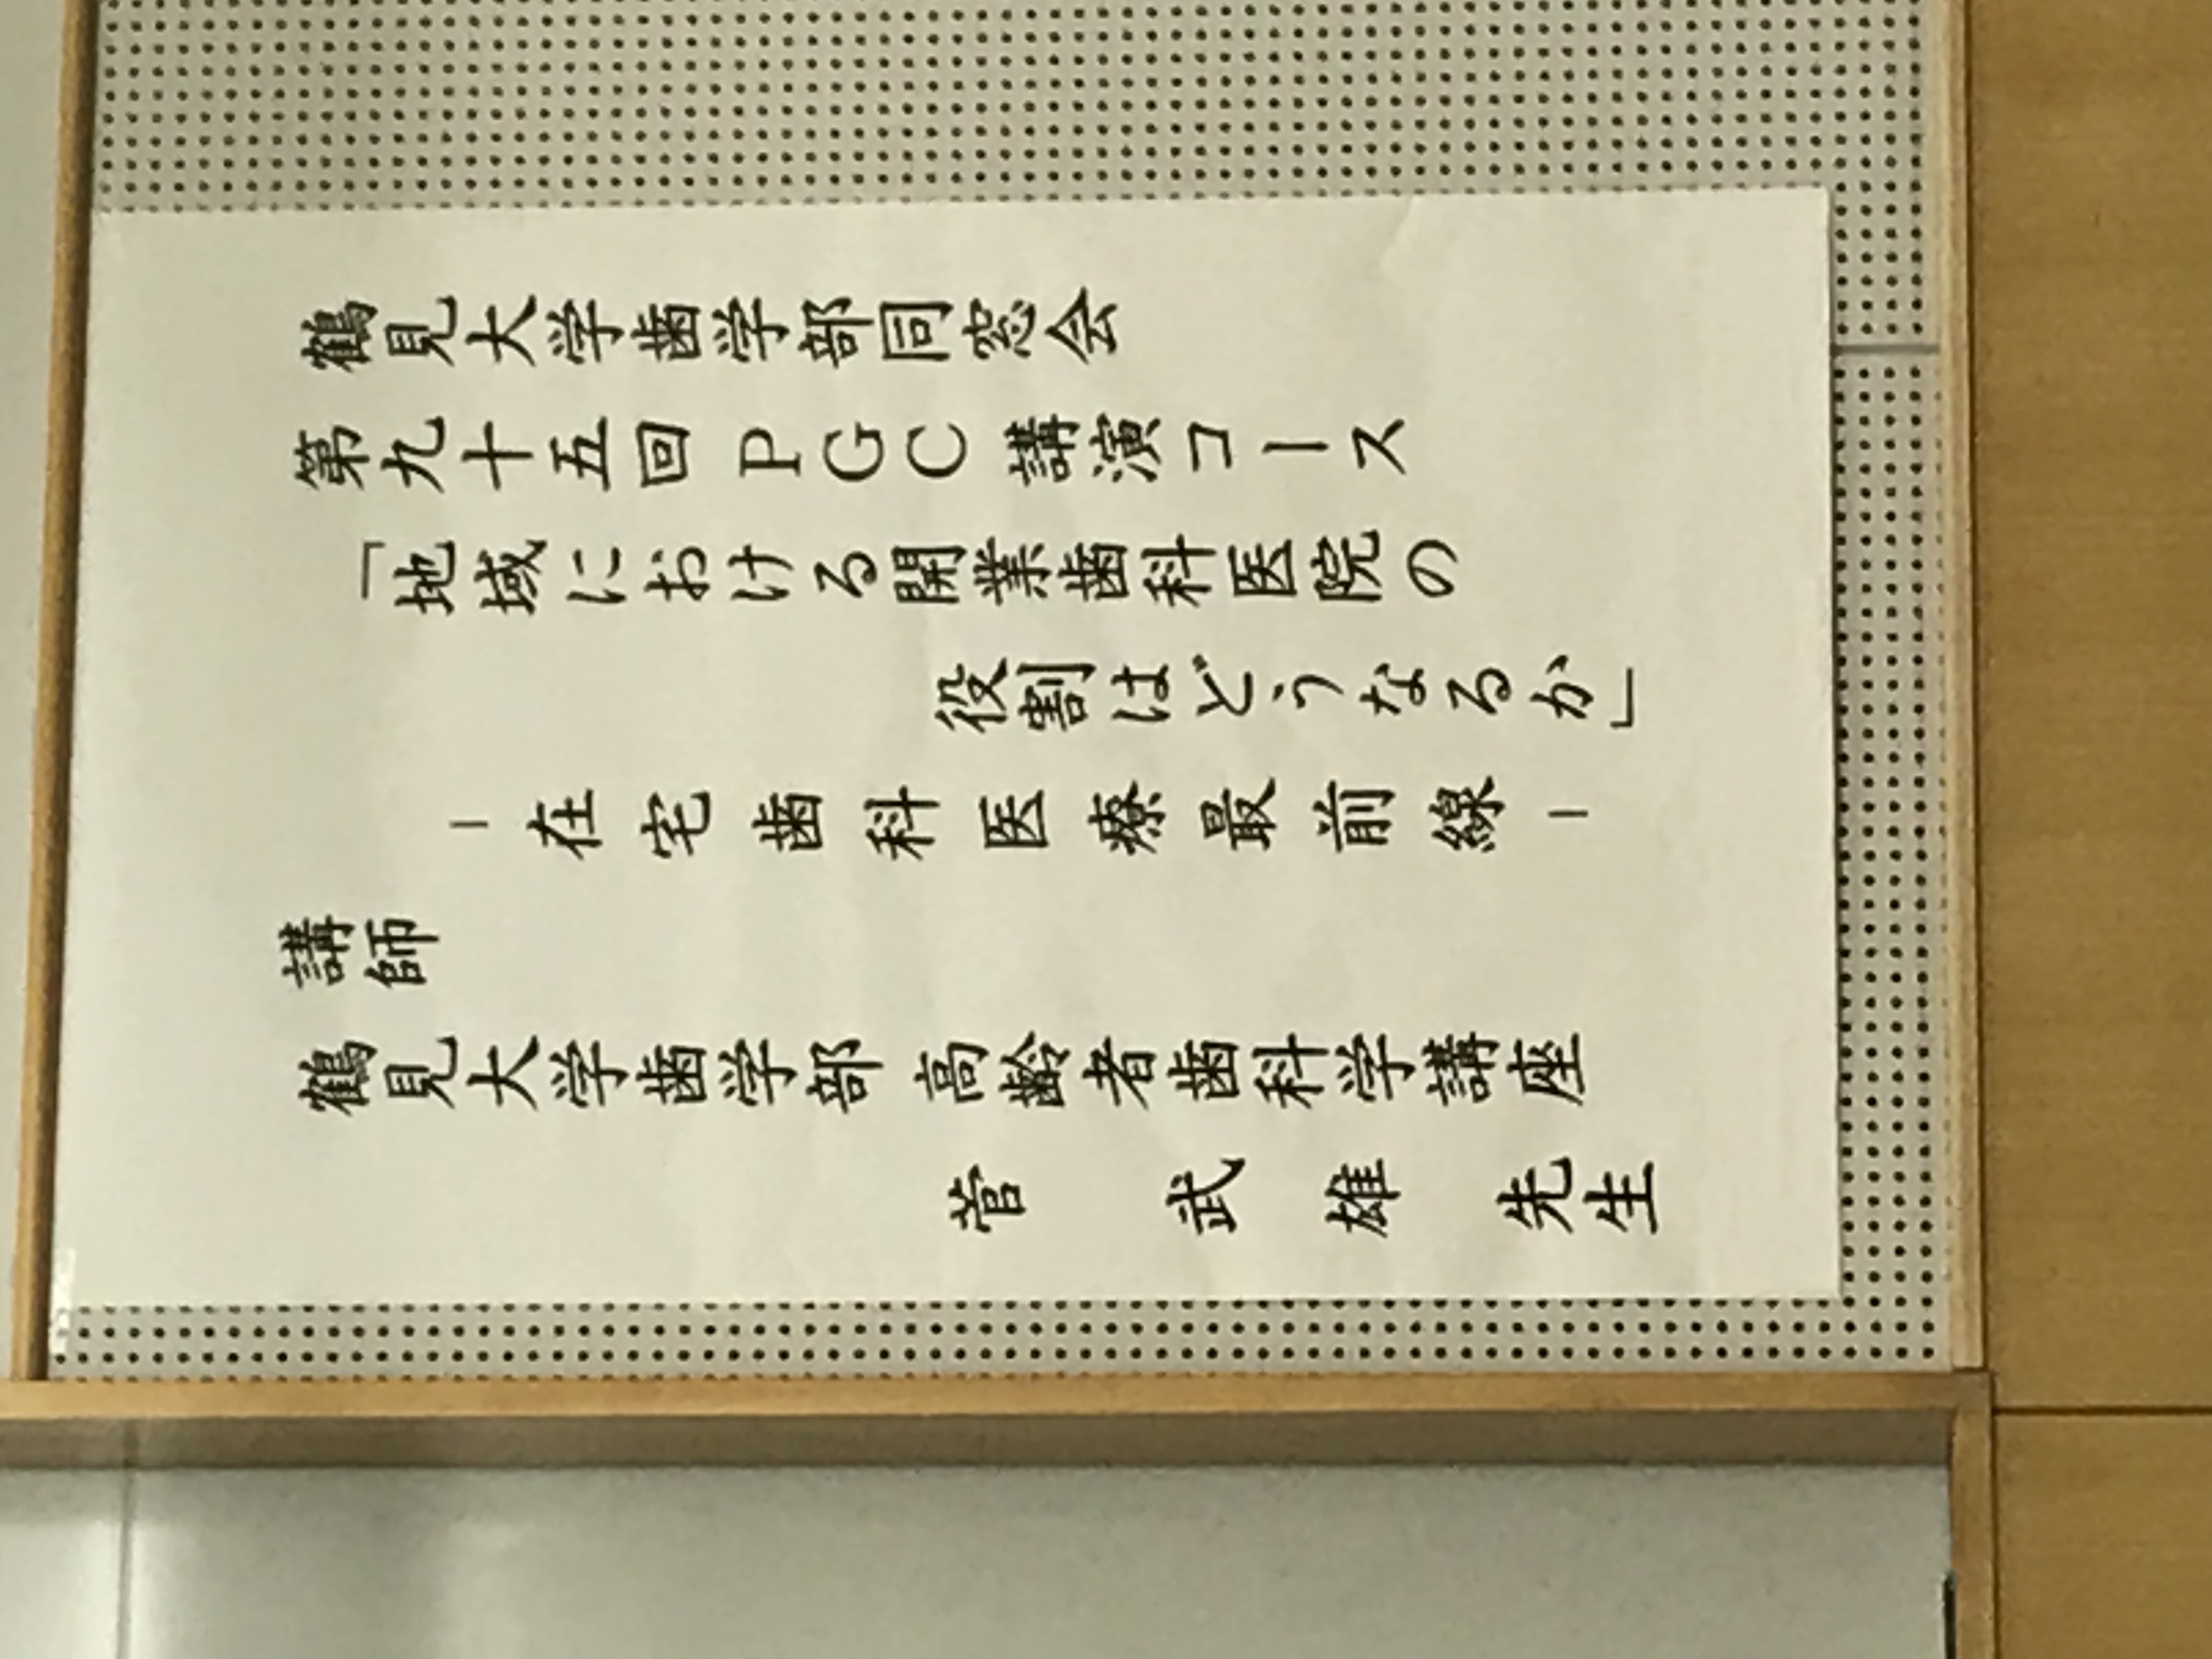 鶴見大学歯学部同窓会
第九十五回 PGC 講演コース
「地域における開業歯科医院の
役割はどうなるか」
－在宅歯科医療最前線－
講師
鶴見大学歯学部 高齢者歯科学講座
菅 武雄 先生